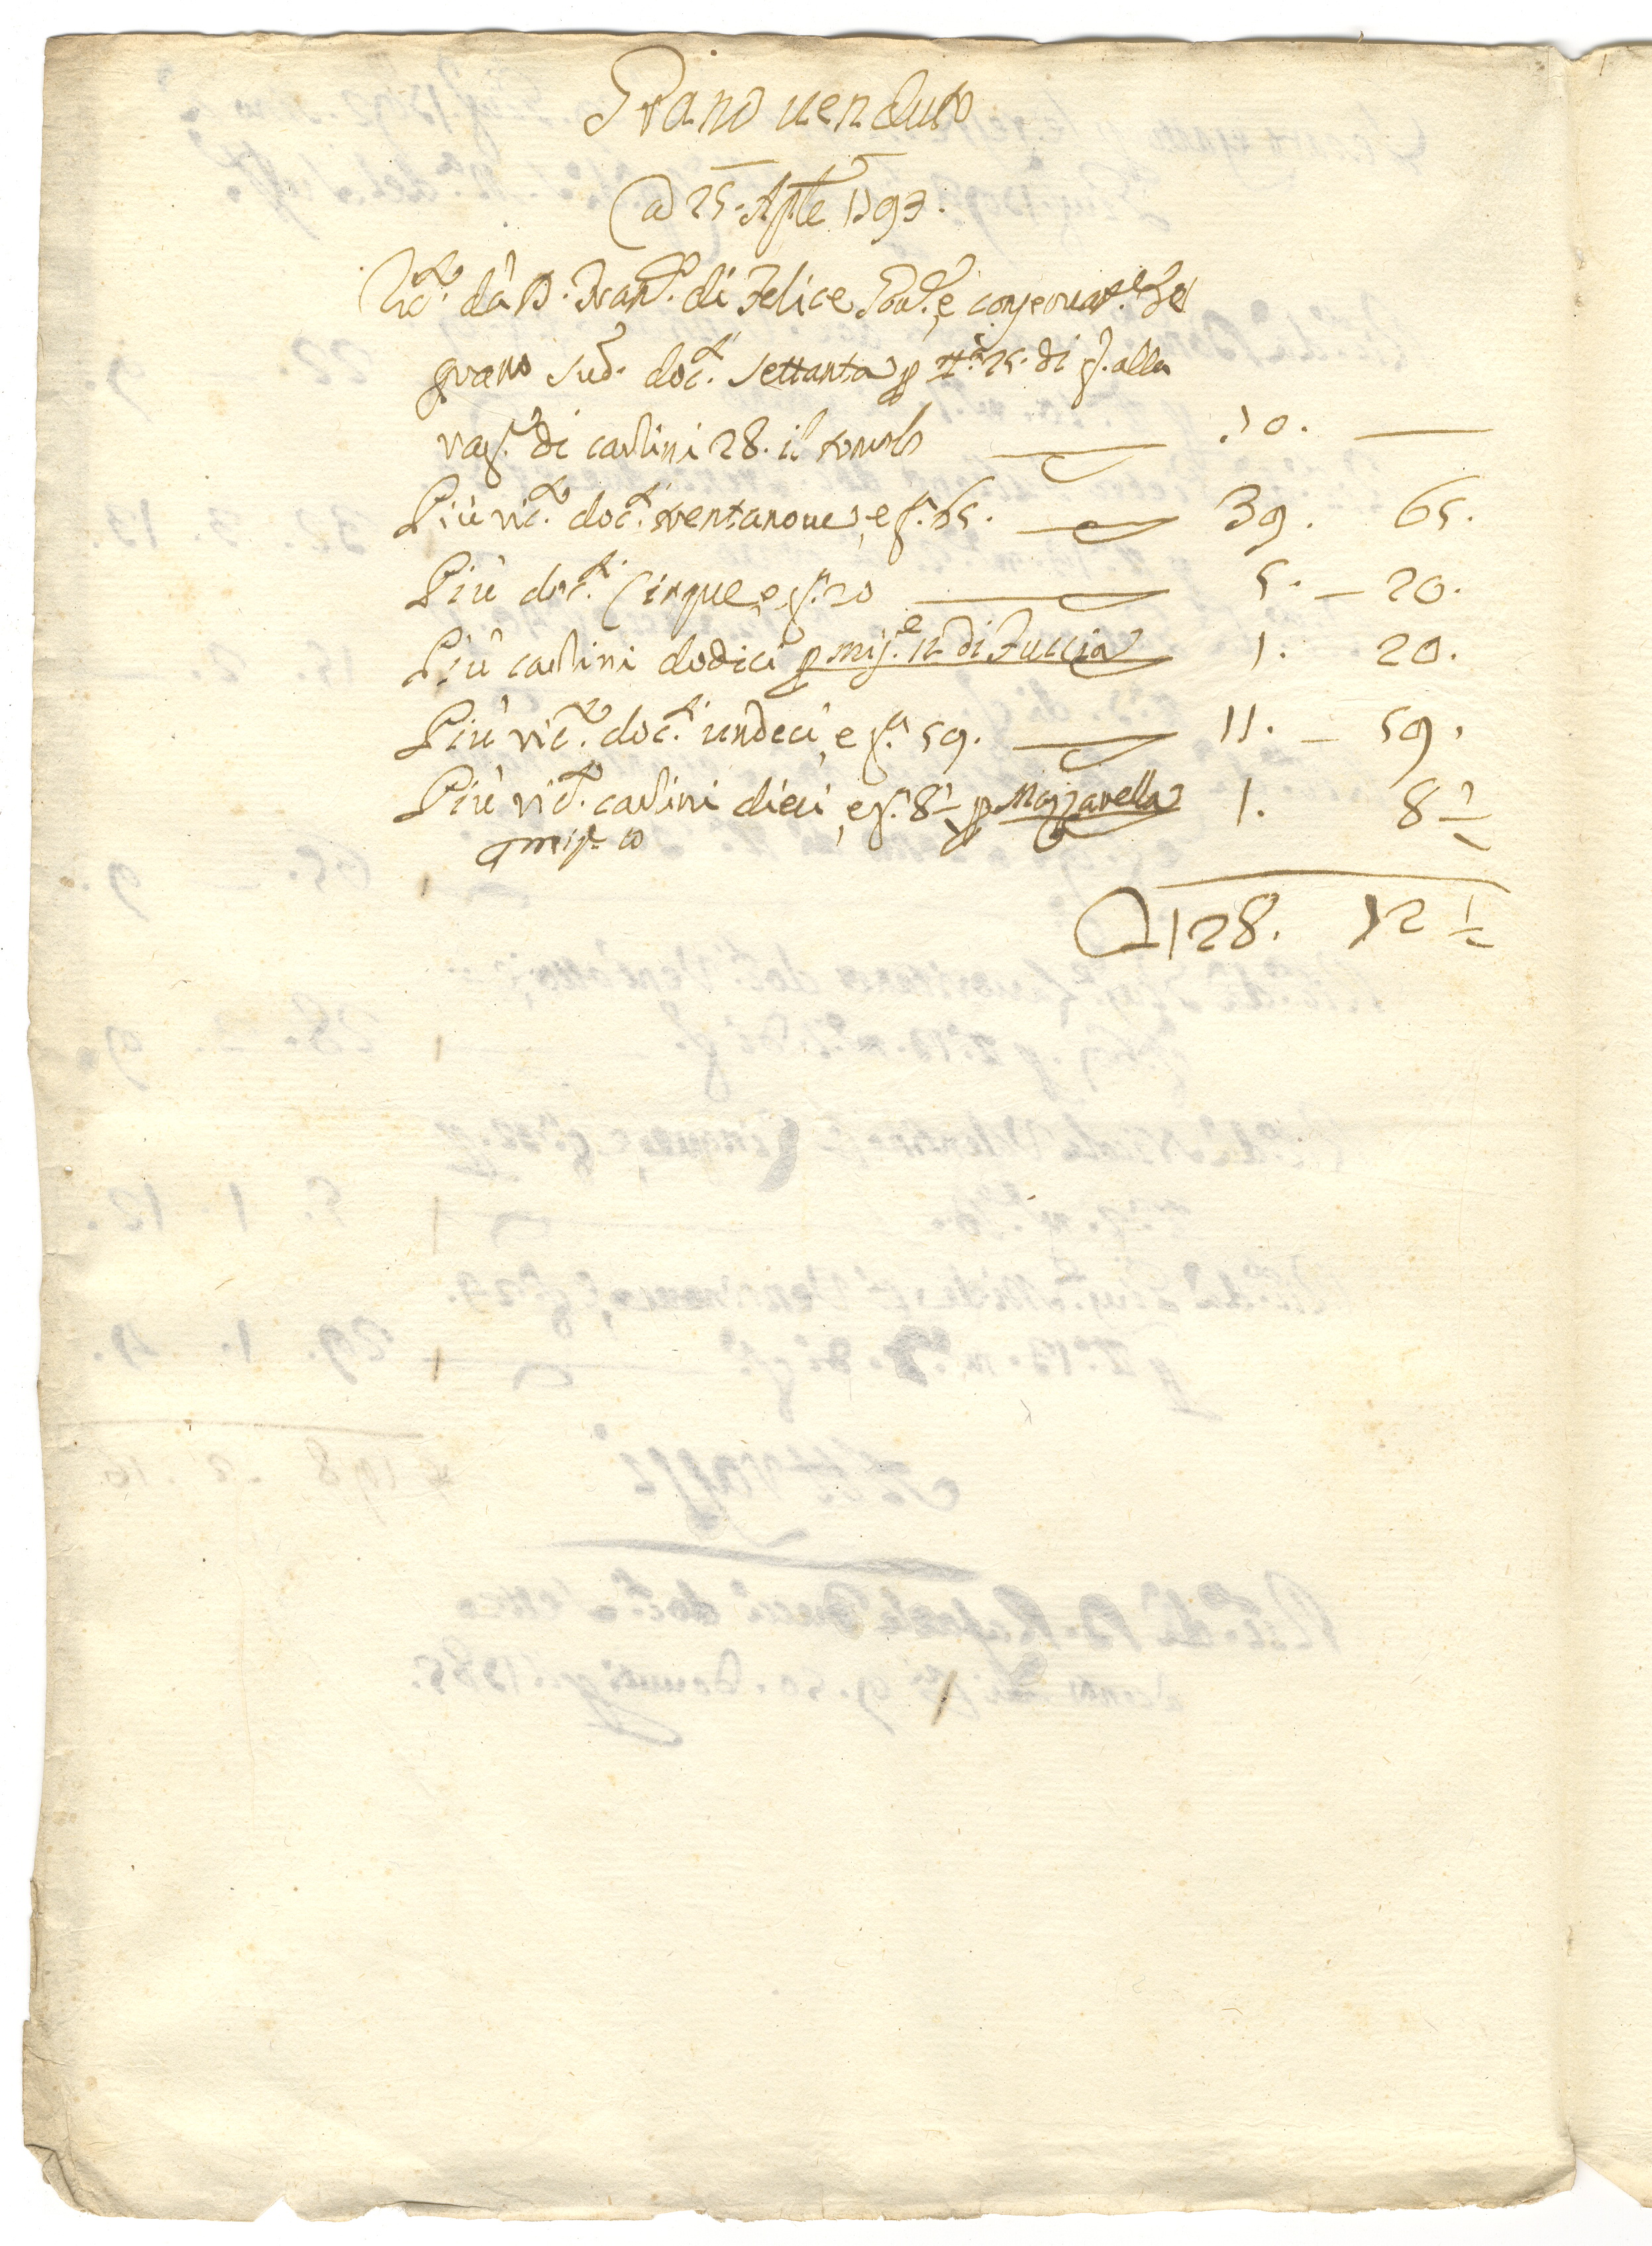 Grano venduto
A 25. Aple 1793.
Ric.to da D. Fran.co di Felice Proc.e, e conservat.e del
grano sud.o doc.ti settanta p tt.a 25. di g. alla
rag.e di carlini 28. il tomolo 70. —
Più ric.to doc.ti trentanove, e g.a 65. 39. 65.
Più doc.ti Cinque, e g. 20 5. — 20.
Più carlini dodici p mis.e 12 di Fuccia 1. 20.
Più ric.to doc.ti undeci, e g.a 59. 11. — 59.
Più ric.to carlini dieci, e g. 8 1/2 p Mazzarella 1. 8 1/2
mis.e 10
128. 72 1/2